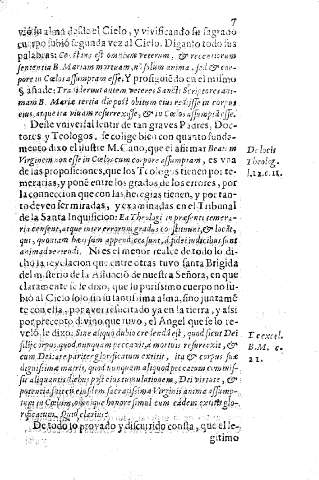 7
vió su alma desde el Cielo, y vivificando se sagrado
cuerpo subió segunda vez al Cielo. Diganto todo sus
palabras: Constans est omnium veterum, & recentiorum
sententia B. Mariam mortuam, nō solum anima, sed & cor-
pore in Cœlos assumptam esse. Y prosiguiēdo en el mismo
§ añade: Tradiderunt autem veteres Sancti Scriptores ani-
mam B. Mariæ tertia die post obitum eius redijsse in corpus
eius, atque ita vivam resurrexisse, & in Cœlos assumptā esse.
Deste vniversal sentir de tan graves Padres, Doc-
tores, y Teologos, se colige bien con quanto funda-
mento dixo el ilustre M. Cano, que el afirmar Beatam
Virginem non esse in Cœlos cum corpore assumptam, es vna
de las proposiciones, que los Teologos tienen por te-
merarias, y ponē entre los grados de los errores, por
la conneccion que con las heregias tienen, y por tan-
to deven ser miradas, y examinadas en el Tribunal
de la Santa Inquisicion: Ea Theologi in præsenti temera-
ria censent, atque inter errorum gradus constituunt, & locāt,
qui, quoniam hæresum appendices sunt, à fidei iudicibus sunt
animadvertendi. Ni es el menor realce de todo lo di-
cho la revelacion que entre otras tuvo santa Brigida
del misterio de la Assunciō de nuestra Señora, en que
claramente se le dixo, que su purissimo cuerpo no su-
bió al Cielo solo sin su santissima alma, sino juntamē
te con ella, por aver resucitado ya en la tierra, y assi
por precepto divino que tuvo, el Angel que se lo re-
veló, le dixo: Sine aliquo dubio credendū est, quod sicut Dei
filij corpus, quod nunquam peccavit, à mortuis resurrexit, &
cum Deitate pariter glorificatum extitit, ita & corpus suæ
dignissimæ matris, quod nunquam aliquod peccatum commis-
sit aliquantis diebus post eius tumulationem, Dei virtute, &
potentia, fuit cum eiusdem sacratissima Virginis anima assump-
tum in Cœlum, omnique honore simul cum eadem extitit glo-
rificatum. Quid clarius?
De todo lo provado y discurrido consta, que el le-
gitimo
De locis
Theolog.
l.12.c.11.
T. excel.
B.M. c.
21.